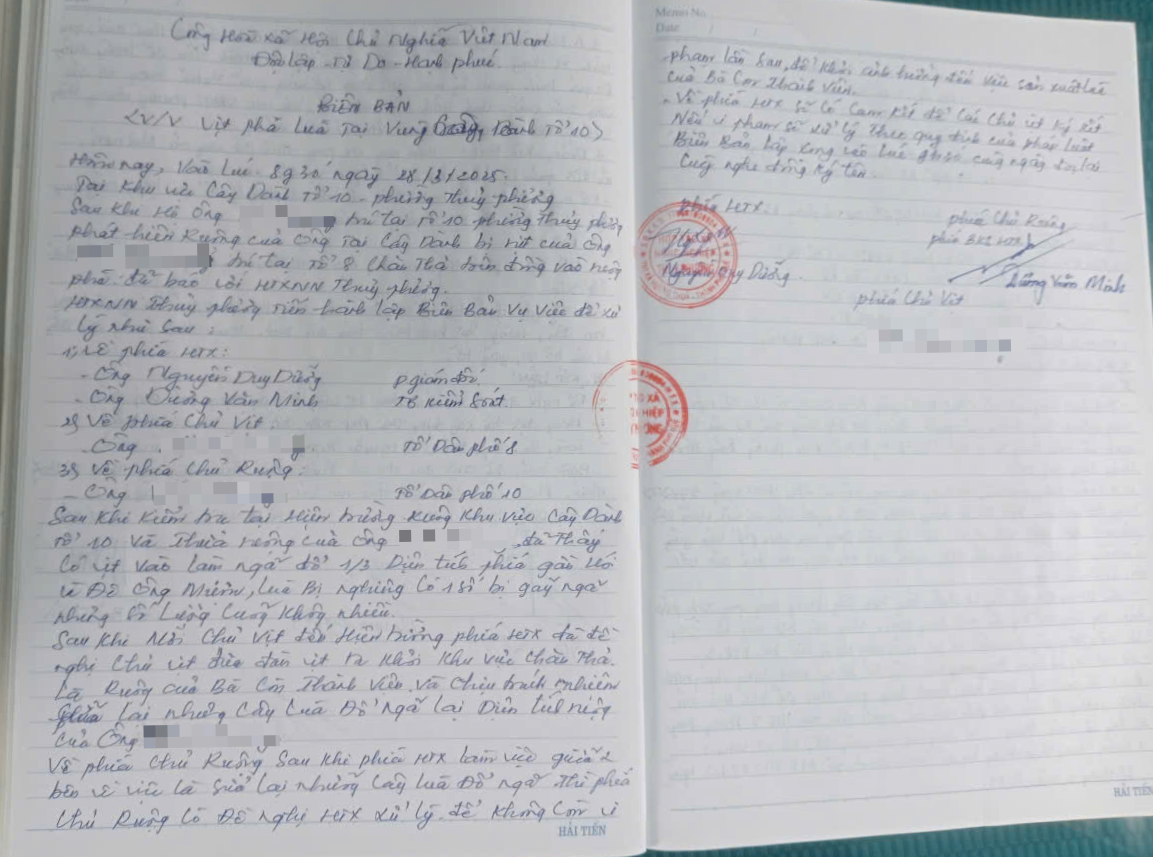 Cộng Hoà xã Hội Chủ Nghĩa Việt Nam
Độc lập - Tự Do - Hạnh phúc.
BIÊN BẢN
<V/v Vịt phá luá Tại Vùng Dành Tổ 10>
Hôm nay, Vào Lúc 8g30 ngày 28/3/2025.
Tại Khu vực Cây Dành Tổ 10 - phường Thuỷ phương
Sau Khi Hộ Ông trú tại Tổ 10 phường Thuỷ phương
phát hiện Ruộng của Ông Tại Cây Dành bị vịt của Ông
trú tại Tổ 8 Chăn Thả trên đồng vào ruộng
phá. đã báo với HTXNN Thuỷ phương.
HTXNN Thuỷ phương tiến hành lập Biên Bản Vụ Việc để xử
lý như sau:
1, Về phía HTX:
- Ông Nguyễn Duy Dưỡng p.giám đốc.
- Ông Dương Văn Minh TB Kiểm Soát
2, Về phía Chủ Vịt
- Ông Tổ Dân phố 8
3, Về phía Chủ Ruộng.
- Ông Tổ Dân phố 10
Sau Khi Kiểm tra tại Hiện trường Ruộng Khu vực Cây Dành
Tổ 10 Và Thửa ruộng của Ông đã Thấy
Có vịt vào làm ngã đổ 1/3 Diện tích phía gần
Đê Ông Miễn, luá Bị nghiêng Có 1 số bị gãy ngã
nhưng Số Lượng Cũng Không nhiều.
Sau Khi Mời Chủ Vịt đến Hiện trường phía HTX đã đề
nghị Chủ vịt đưa đàn vịt ra Khỏi Khu vực Chăn Thả.
Là Ruộng của Bà Con Thành Viên Và Chịu trách nhiệm
lại những Cây Luá Đổ ngã lại Diện tích ruộng
của Ông
Về phía Chủ Ruộng Sau Khi phía HTX làm việc giữa 2
bên về việc là Sửa lại những Cây luá Đổ ngã Thì phía
Chủ Ruộng Có Đề Nghị HTX xử lý để Không Còn vi
HẢI TIẾN
Memo No.
Date / /
phạm lần Sau, để Khỏi ảnh hưởng đến việc sản xuất
của Bà Con Thành Viên.
- Về phía HTX sẽ Có Cam Kết để Các Chủ vịt Ký Kết
Nếu vi phạm sẽ xử lý Theo quy định của pháp luật
Biên Bản lập xong vào lúc cùng ngày đọc lại
Cùng nghe đồng Ký tên
phía HTX
phía Chủ Ruộng
phía BKS HTX
Nguyễn Duy Dưỡng.
Dương Văn Minh
phía Chủ Vịt
HẢI TIẾN